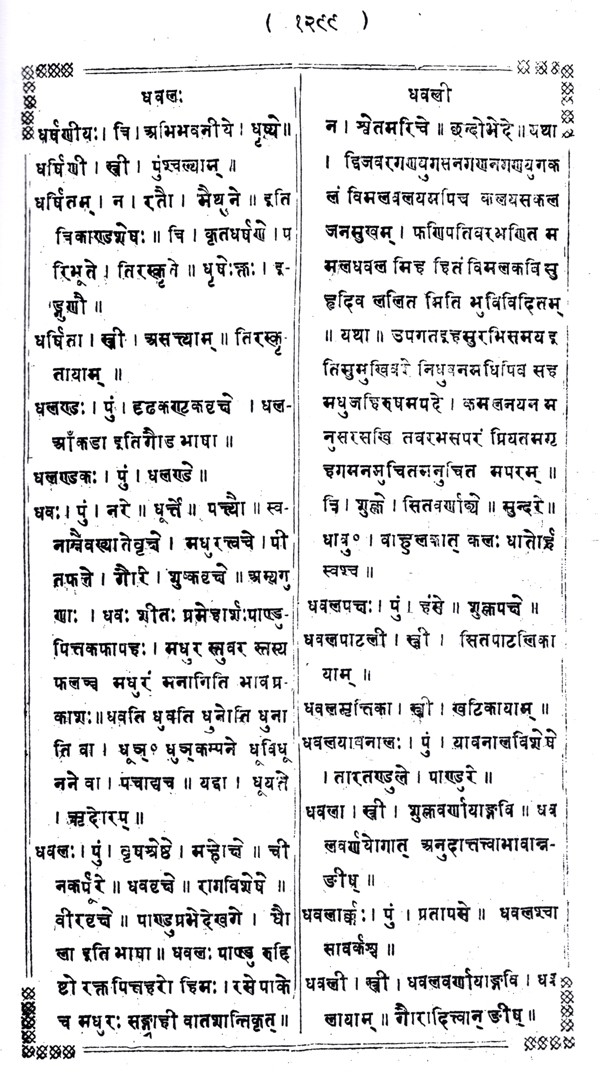 ( १२९९ )
धवलः
धर्षणीयः। त्रि। अभिभवनीये। धृष्ये॥
धर्षिणी। स्त्री। पुंश्चल्याम्॥
धर्षितम्। न। रतौ। मैथुने॥ इति
त्रिकाण्डशेषः॥ त्रि। कृतधर्षणे। प
रिभूते। तिरस्कृते॥ धृषेः क्तः। इ
ड्गुणौ॥
धर्षिता। स्त्री। असत्याम्॥ तिरस्कृ
तायाम्॥
धलण्डः। पुं। दृढकण्टकवृक्षे। धल-
आँकडा इतिगौडभाषा॥
धलण्डकः। पुं। धलण्डे॥
धवः। पुं। नरे॥ धूर्त्ते॥ पत्यौ॥ स्व
नाम्नैवख्यातेवृक्षे। मधुरत्वचे। पी
तफले। गौरे। शुष्कवृक्षे॥ अस्यगु
णाः। धवः शीतः प्रमेहार्शःपाण्डु-
पित्तकफापहः। मधुर स्तुवर स्तस्य
फलञ्च मधुरं मनागिति भावप्र-
काशः॥ धवति धुवति धुनोति धुना
ति वा। धूञ्॰ धुञ्कम्पने धूविधू
नने वा। पचाद्यच॥ यद्वा। धूयते
। ॠदोरप्॥
धवलः। पुं। वृषश्रेष्ठे। महोक्षे॥ ची
नकर्पूरे॥ धववृक्षे॥ रागविशेषे॥
वीरवृक्षे॥ पाण्डुप्रभेदेखगे। धौ
ला इतिभाषा॥ धवलः पाण्डु रुद्दि
ष्टो रक्तपित्तहरो हिमः। रसेपाके
च मधुरः सङ्ग्राही वातशान्तिकृत्॥
धवली
न। श्वेतमरिचे॥ छन्दोभेदे॥ यथा
। द्विजवरगणयुगसनगणनगणयुगक
लं विमलवलयमपिच कलयसकल
जनसुखम्। फणिपतिवरभणित म
मलधवल मिह हितं विमलकविसु
हृदिव ललित मिति भुविविदितम्
॥ यथा॥ उपगतइहसुरभिसमयइ
तिसुमुखिवदे निधुवनमधिपिव सह
मधुजहिरुषमपदे। कमलनयन म
नुसरसखि तवरभसपरं प्रियतमगृ
हगमनमुचितमनुचित मपरम्॥
त्रि। शुक्ले। सितवर्णाढ्ये॥ सुन्दरे॥
धावु॰। वाहुलकात् कलः धातोर्ह्र
स्वश्च॥
धवलपक्षः। पुं। हंसे॥ शुक्लपक्षे॥
धवलपाटली। स्त्री। सितपाटलिका
याम्॥
धवलमृत्तिका। स्त्री। खटिकायाम्॥
धवलयावनालः। पुं। यावनालविशेषे
। तारतण्डुले। पाण्डुरे॥
धवला। स्त्री। शुक्लवर्णायाङ्गवि॥ धव
लवर्णयोगात् अनुदात्तत्त्वाभावान्न-
ङीष्॥
धवलार्क्कः। पुं। प्रतापसे॥ धवलश्चा
सावर्कश्च॥
धवली। स्त्री। धवलवर्णायाङ्गवि। धव
लायाम्॥ गौरादित्त्वान् ङीष्॥